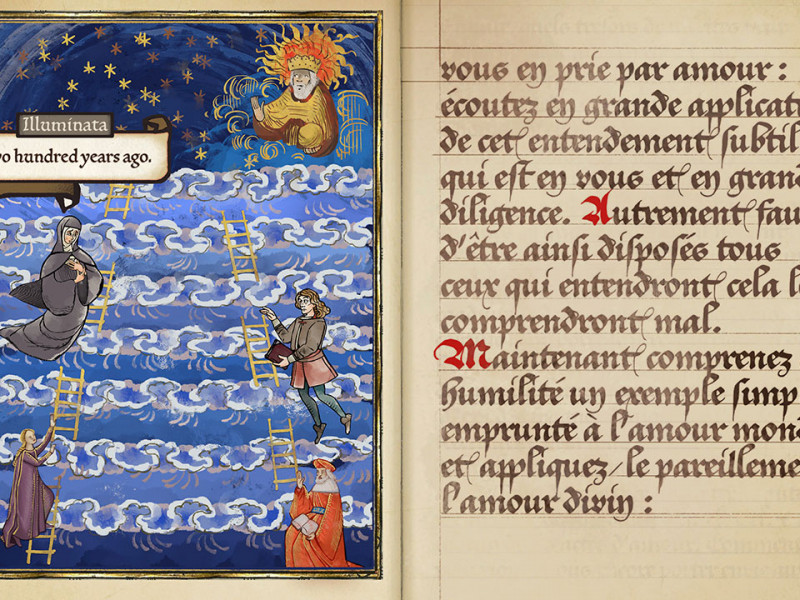 Illuminata
wo hundred years ago.
vous en prie par amour :
écoutez en grande applicati
de cet entendement subtil
qui est en vous et en grand
diligence. Autrement fau
d'être ainsi disposés tous
ceux qui entendront cela l
comprendront mal.
Maintenant comprenez
humilité un exemple simp
emprunté à l'amour mon
et appliquez-le pareilleme
l'amour divin :